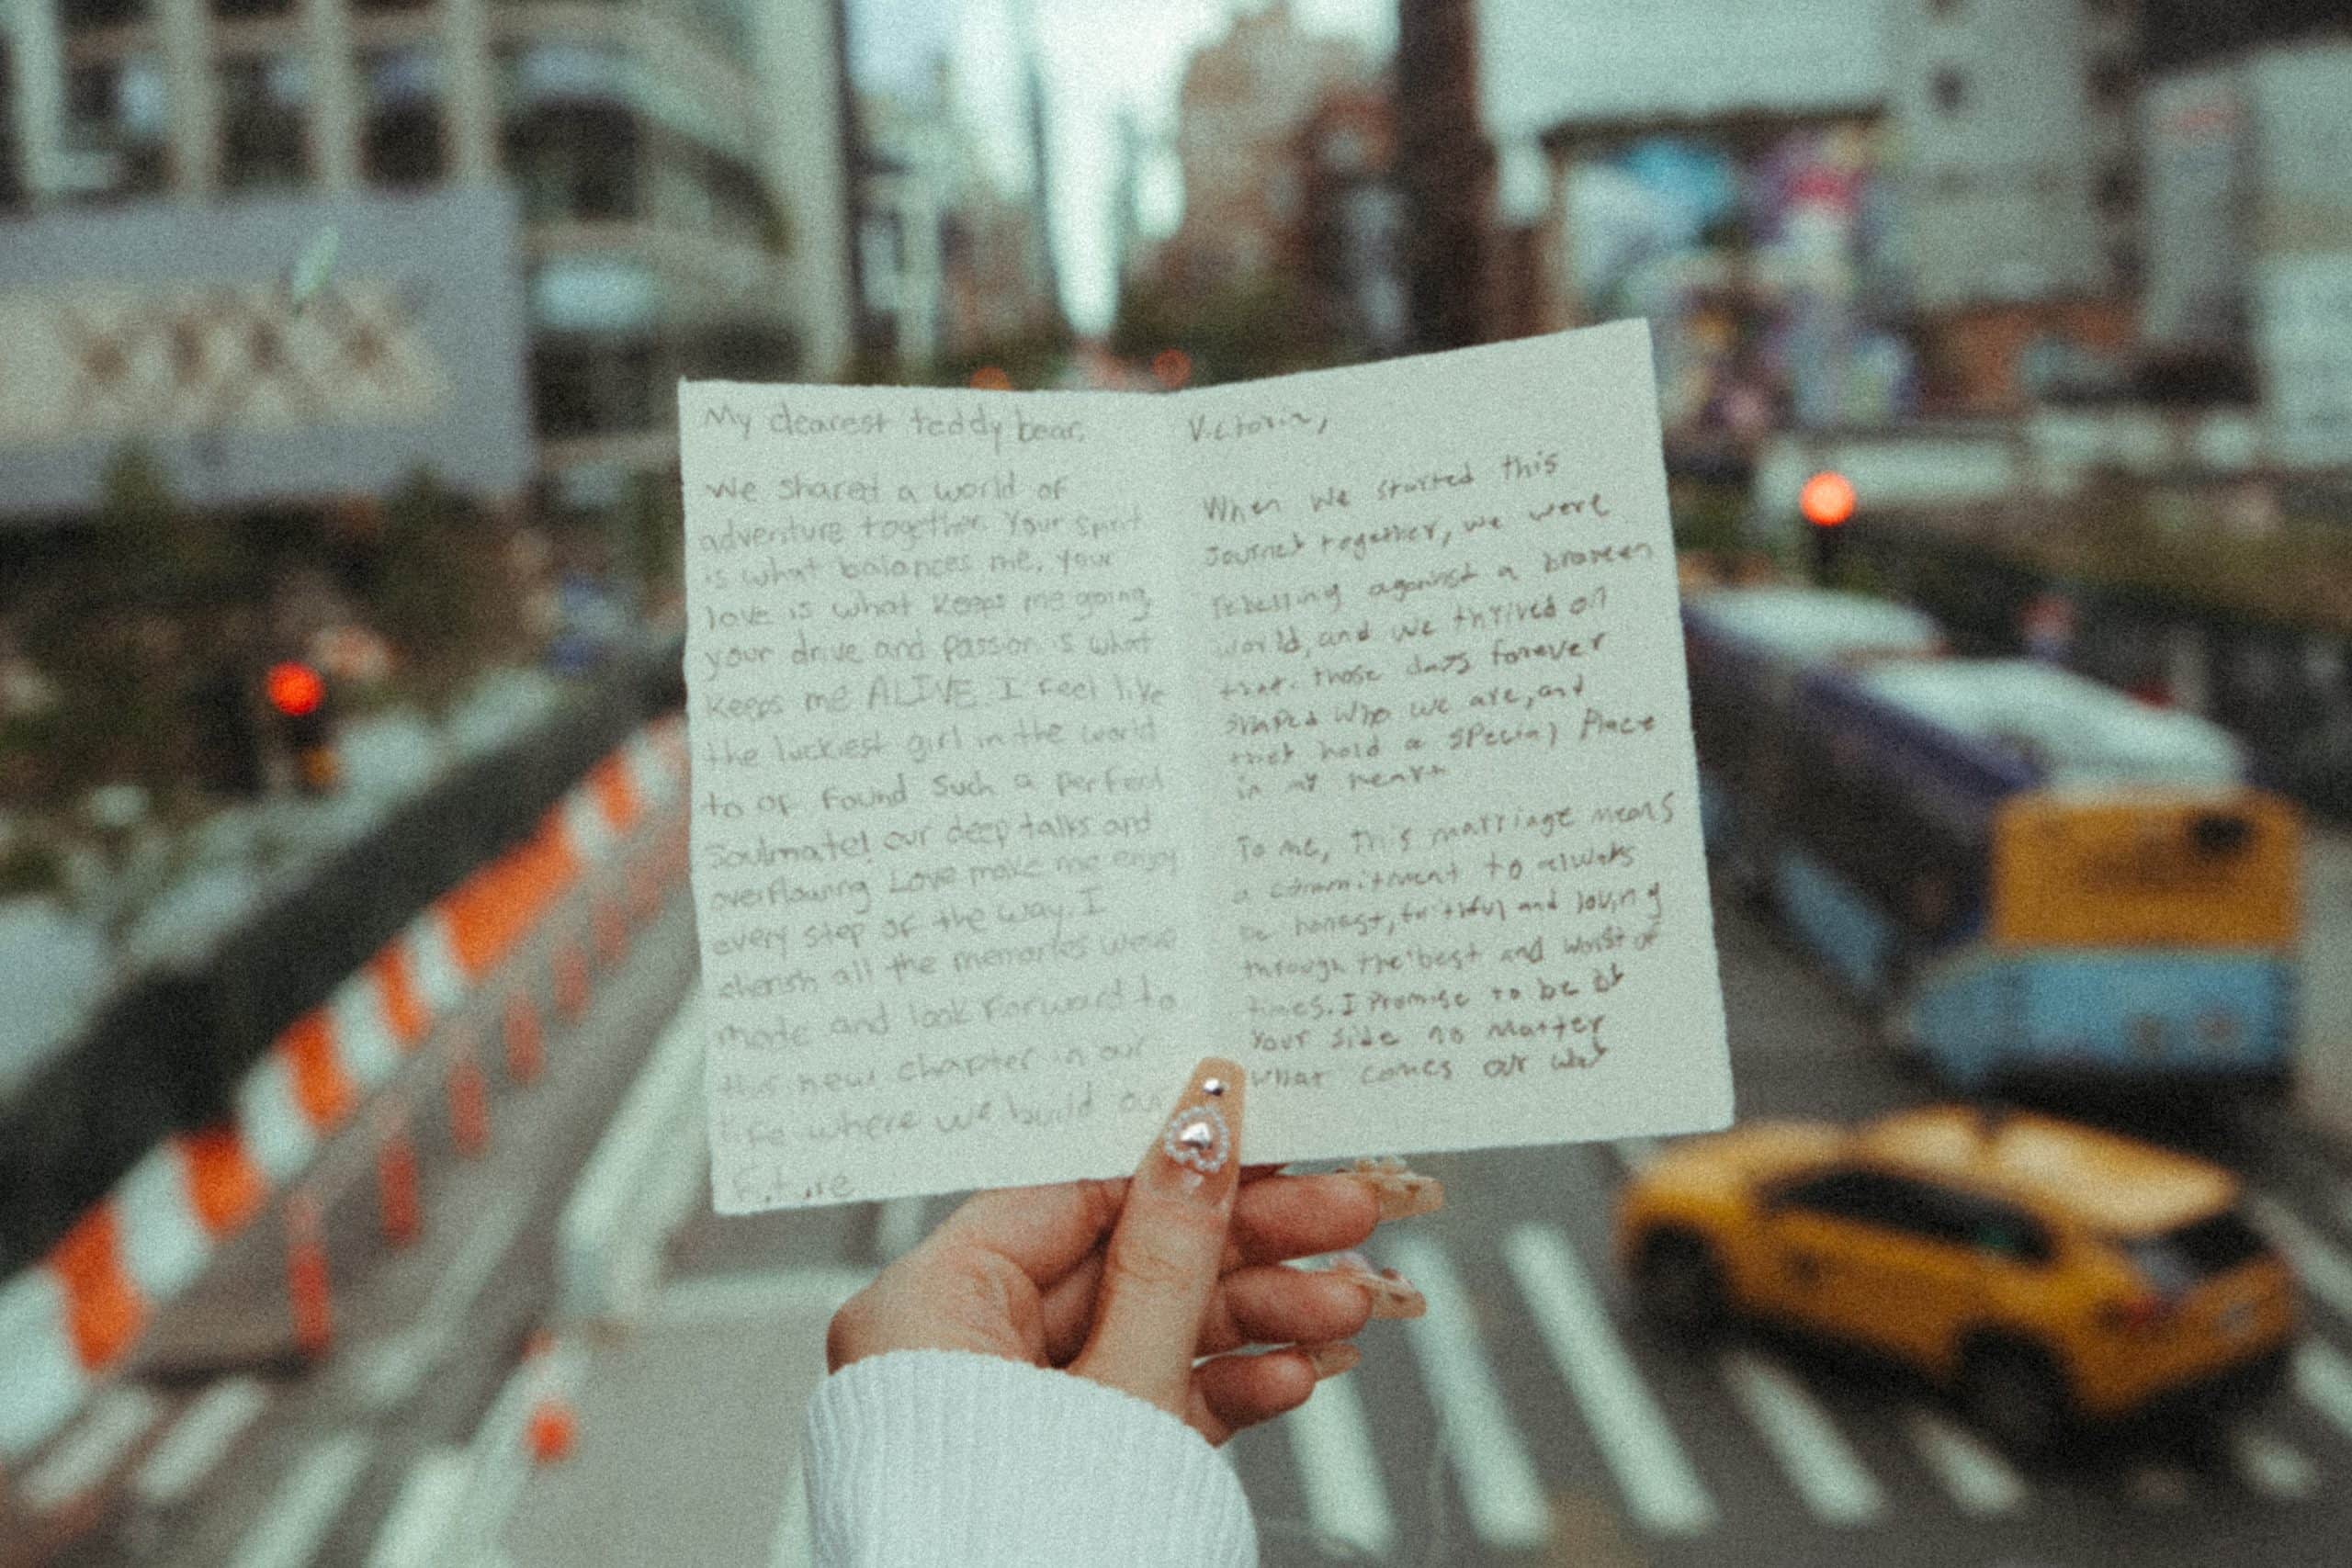 My dearest teddy bear,
We shared a world of
adventure together. Your spirit
is what balances me, your
love is what keeps me going,
your drive and passion is what
keeps me ALIVE. I feel like
the luckiest girl in the world
to of found such a perfect
Soulmate! our deep talks and
overflowing Love make me enjoy
every step of the way. I
cherish all the memories weve
made and look forward to
this new chapter in our
life where we build our
future
Victoria,
When we started this
Journey together, we were
rebelling against a broken
world, and we thrived on
that. those days forever
shaped who we are, and
that hold a special place
in my heart
To me, this marriage means
a commitment to always
be honest, faithful and loving
through the best and worst of
times. I Promise to be by
Your side no matter
what comes our way